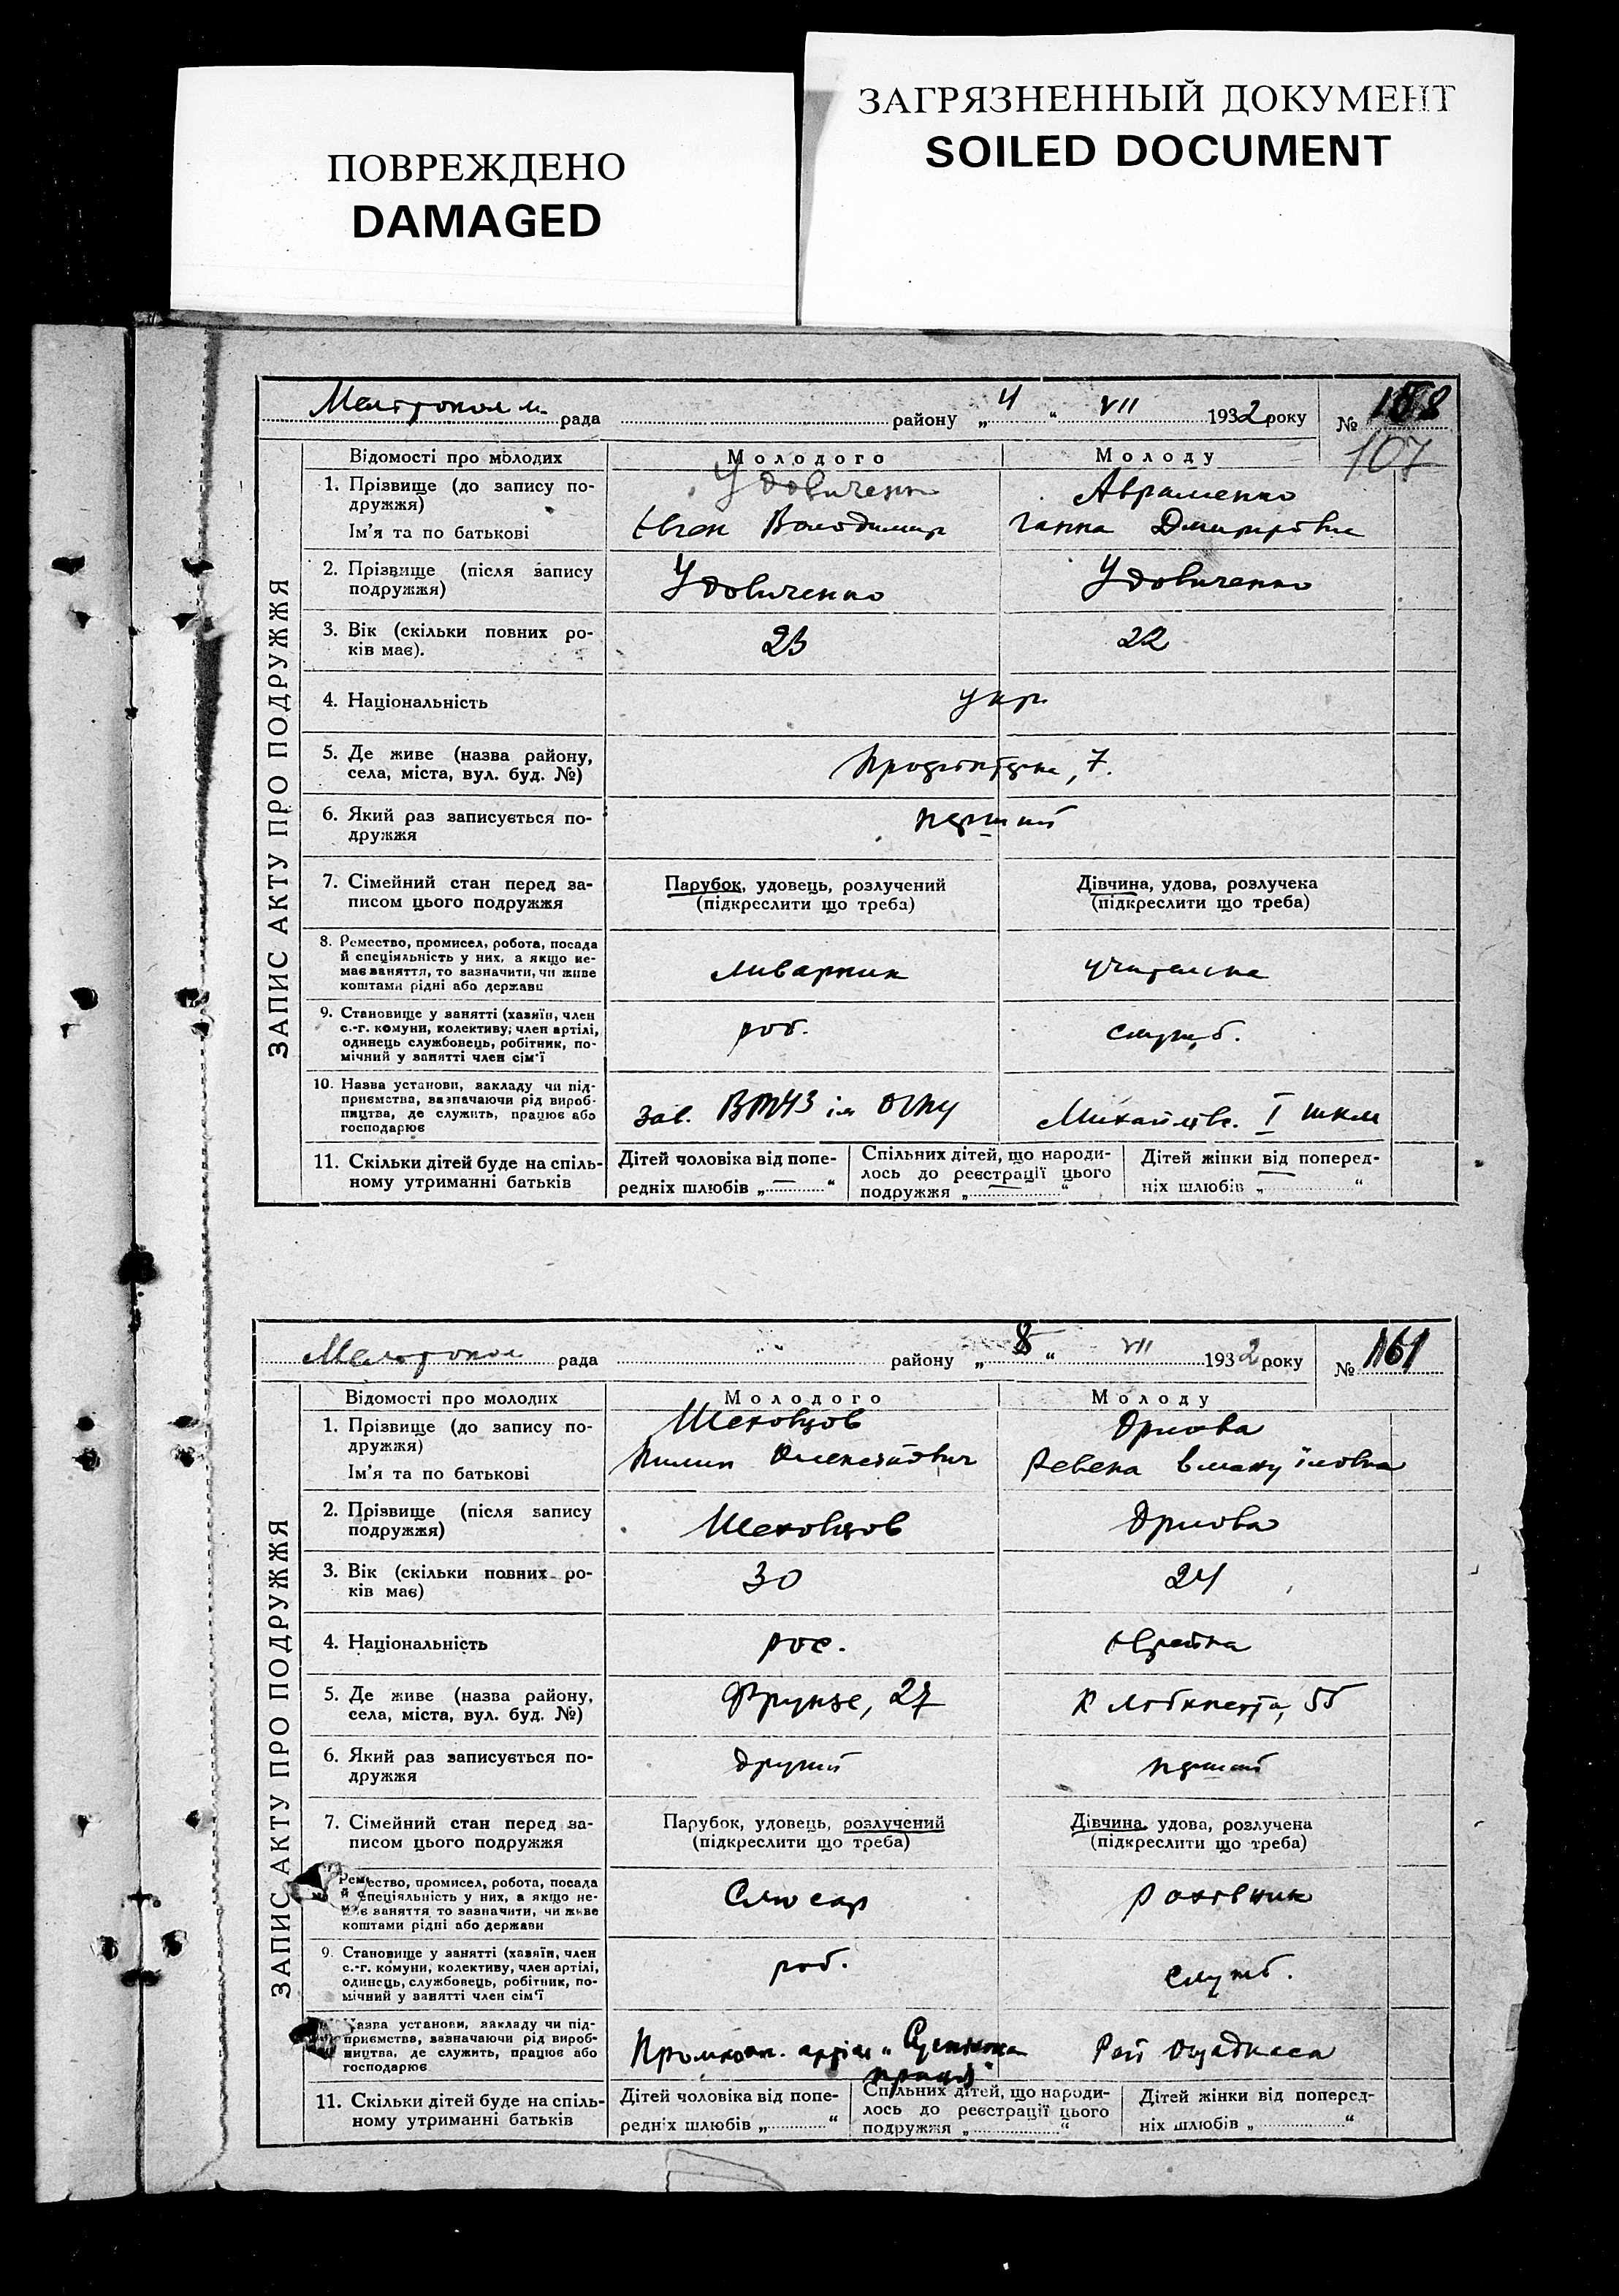 ЗАГРЯЗНЕННЫЙ ДОКУМЕНТ
SOILED DOCUMENT
ПОВРЕЖДЕНО
DAMAGED
рада району „4“ VII 1932 року № 158
107
ЗАПИС АКТУ ПРО ПОДРУЖЖЯ
Відомості про молодих Молодого Молоду
1. Прізвище (до запису по-
дружжя) Удовиченко Авраменко
Ім'я та по батькові Євген Володимир Ганна Дмитрівна
2. Прізвище (після запису
подружжя) Удовиченко Удовиченко
3. Вік (скільки повних ро-
ків має). 23 22
4. Національність укр
5. Де живе (назва району,
села, міста, вул. буд. №) 7.
6. Який раз записується по-
дружжя перший
7. Сімейний стан перед за-
писом цього подружжя
Парубок, удовець, розлучений
(підкреслити що треба)
Дівчина, удова, розлучека
(підкреслити що треба)
8. Ремество, промисел, робота, посада
й спеціяльність у них, а якщо не-
має заняття, то зазначити, чи живе
коштами рідні або держави
ливарник учителька
9. Становище у занятті (хазяїн, член
с.-г. комуни, колективу; член артілі,
одинець службовець, робітник, по-
мічний у занятті член сім'ї
роб. служб.
10. Назва установи, закладу чи під-
приємства, зазначаючи рід вироб-
ництва, де служить, працює або
господарює
зав. ім ОГПУ I шкла
11. Скільки дітей буде на спіль-
ному утриманні батьків
Дітей чоловіка від попе-
редніх шлюбів „—“
Спільних дітей, що народи-
лось до реєстрації цього
подружжя „—“
Дітей жінки від поперед-
ніх шлюбів „—“
Мелітопол рада району „8“ VII 1932 року № 161
ЗАПИС АКТУ ПРО ПОДРУЖЖЯ
Відомості про молодих Молодого Молоду
1. Прізвище (до запису по-
дружжя) Шеховцов
Ім'я та по батькові Пилип Олексійович Ревека
2. Прізвище (після запису
подружжя) Шеховцов
3. Вік (скільки повних ро-
ків має) 30 24
4. Національність рос. єврейка
5. Де живе (назва району,
села, міста, вул. буд. №) Фрунзе, 27 К Лібкнехта, 55
6. Який раз записується по-
дружжя другий перший
7. Сімейний стан перед за-
писом цього подружжя
Парубок, удовець, розлучений
(підкреслити що треба)
Дівчина, удова, розлучена
(підкреслити що треба)
Ремество, промисел, робота, посада
й спеціяльність у них, а якщо не-
має заняття то зазначити, чи живе
коштами рідні або держави
Слюсар рахівник
9. Становище у занятті (хазяїн, член
с.-г. комуни, колективу, член артілі,
одинець, службовець, робітник, по-
мічний у занятті член сім'ї
роб. служб.
Назва установи, закладу чи під-
приємства, зазначаючи рід вироб-
ництва, де служить, працює або
господарює
Промкооп. артіль праця“ Рай Ощадкаса
11. Скільки дітей буде на спіль-
ному утриманні батьків
Дітей чоловіка від попе-
редніх шлюбів „“
Спільних дітей, що народи-
лось до реєстрації цього
подружжя „“
Дітей жінки від поперед-
ніх шлюбів „“